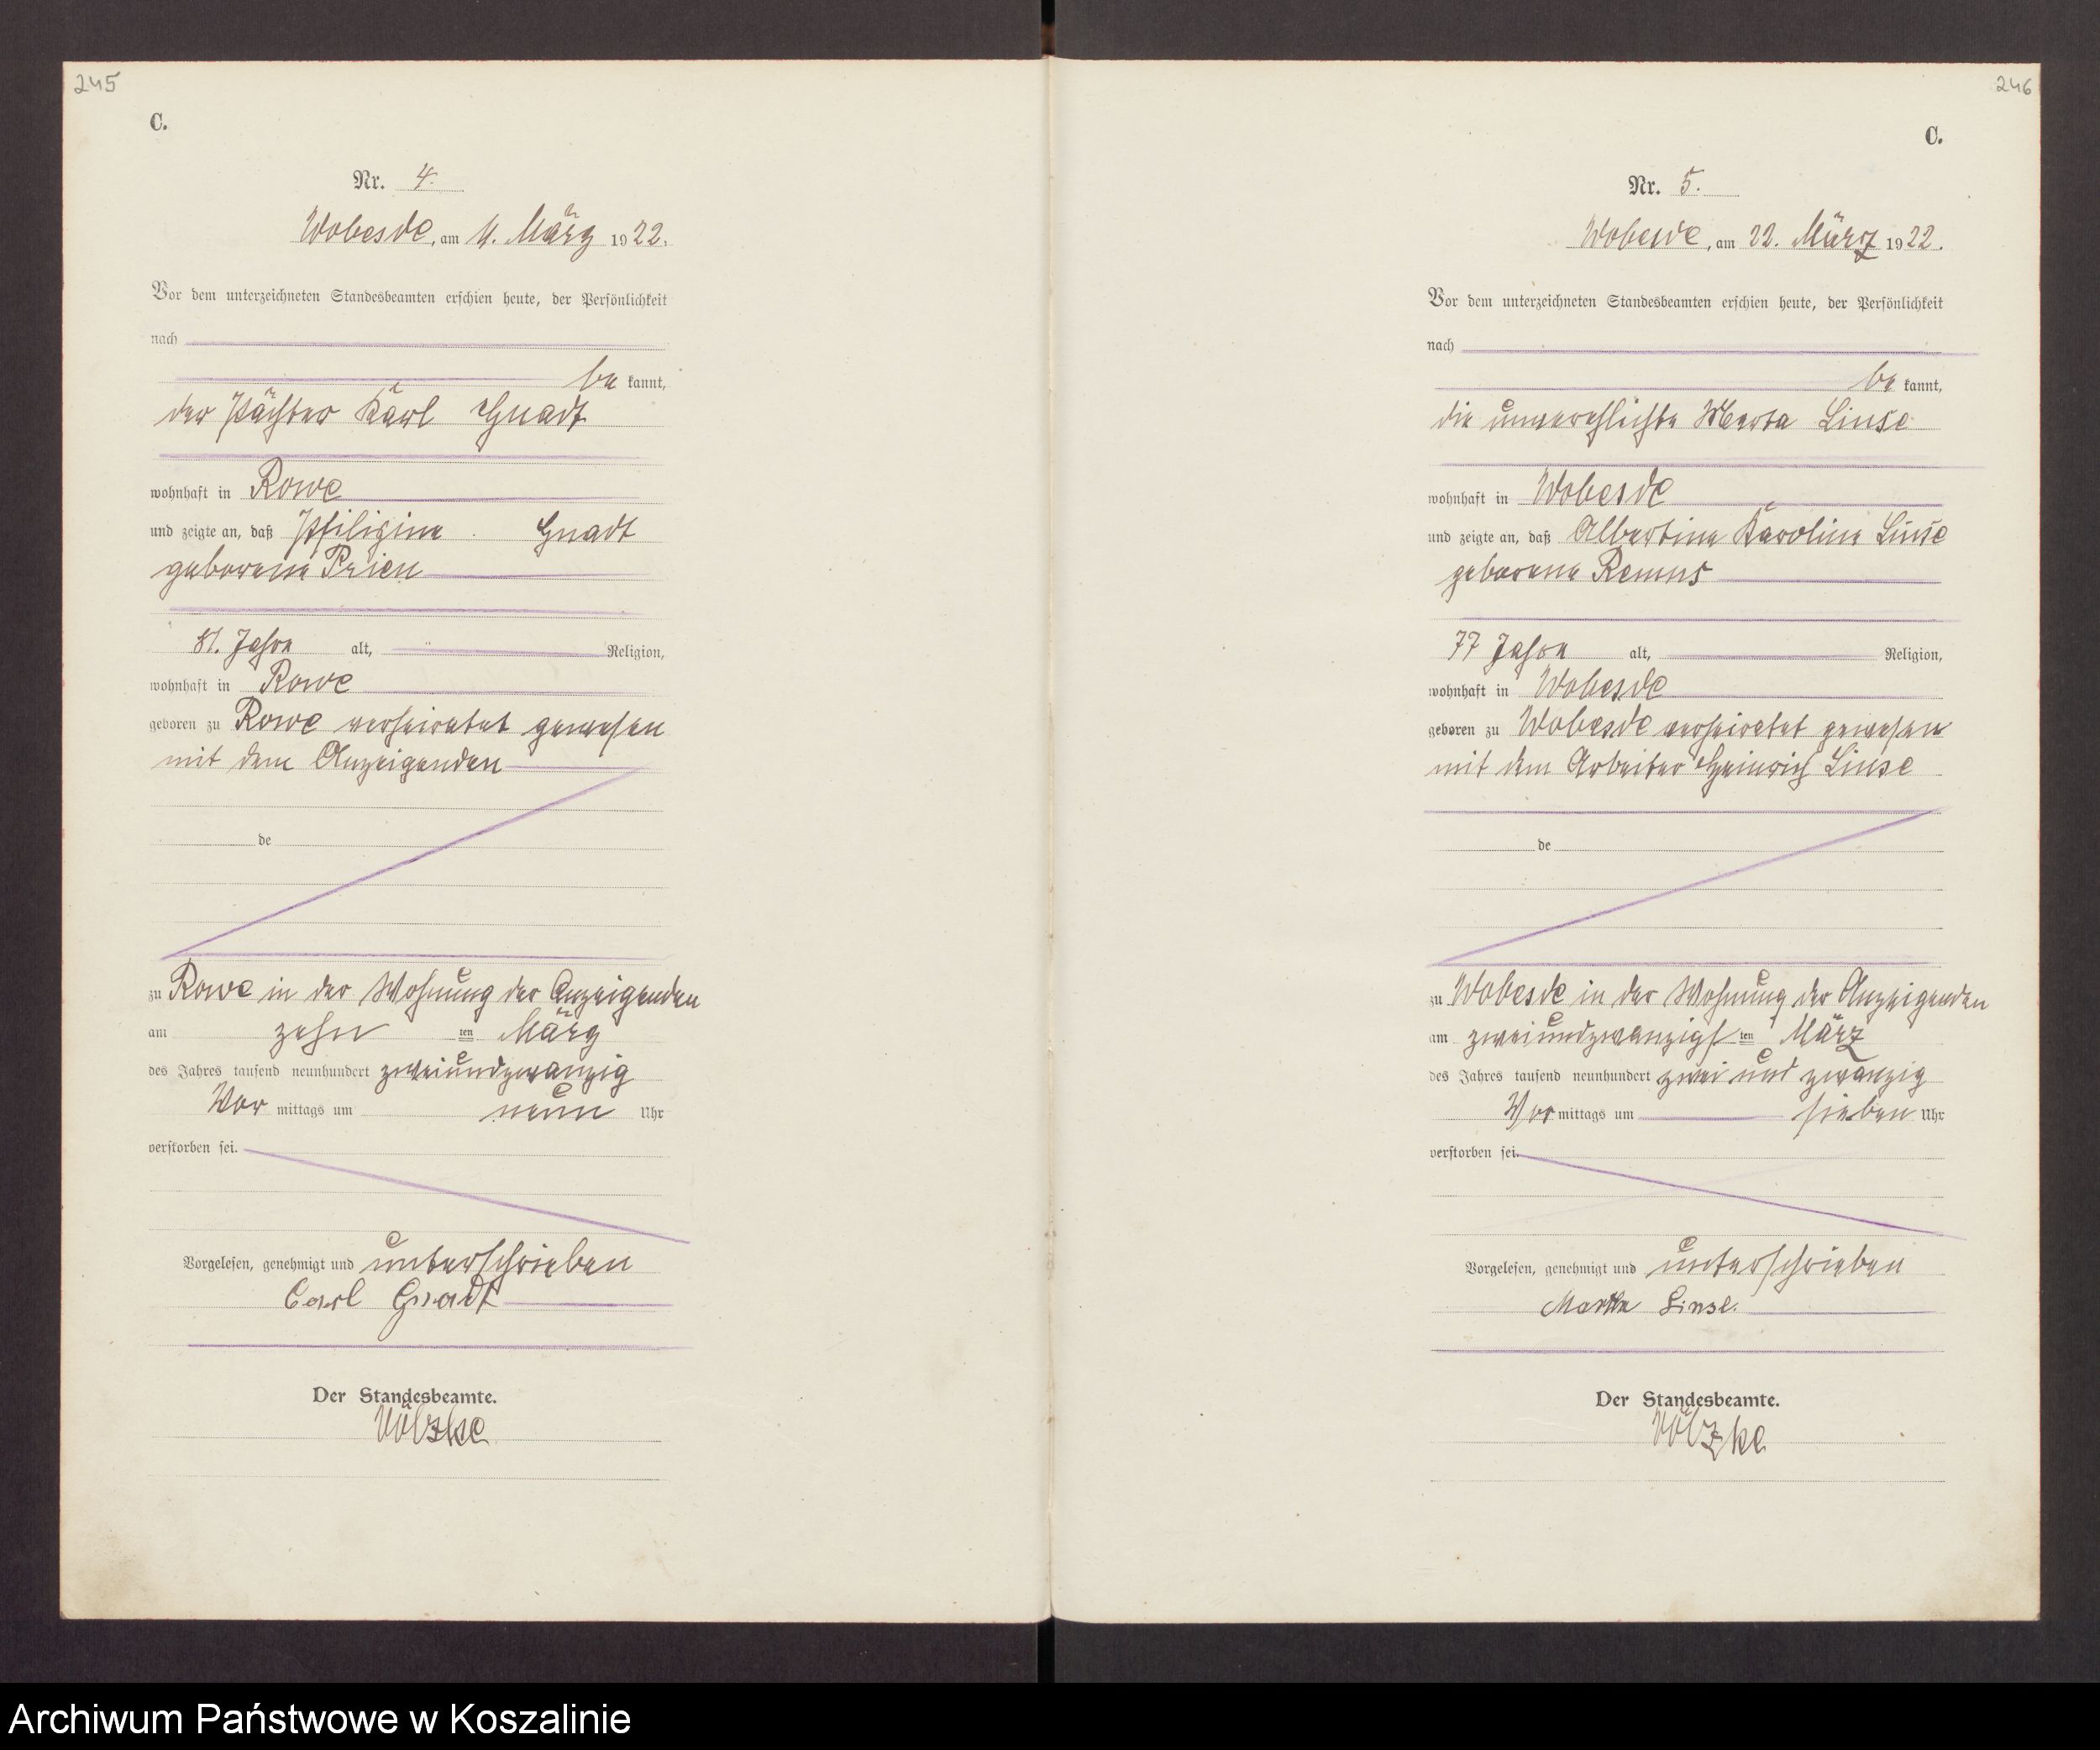 245
C.
Nr. 4.
Wobesde, am 11. März 1922.
Vor dem unterzeichneten Standesbeamten erschien heute, der Persönlichkeit
nach
be kannt,
der Pächter Karl Gnadt
wohnhaft in Rowe
und zeigte an, daß Gnadt
geborene Prien
81. Jahre alt, Religion,
wohnhaft in Rowe
geboren zu Rowe verheiratet gewesen
mit dem Anzeigenden
de
zu Rowe in der Wohnung der Anzeigenden
am zehn ten März
des Jahres tausend neunhundert zweiundzwanzig
Vor mittags um neun Uhr
verstorben sei.
Vorgelesen, genehmigt und unterschrieben
Carl Gnadt
Der Standesbeamte.
Völzke
246
C.
Nr. 5.
Wobesde, am 22. März 1922.
Vor dem unterzeichneten Standesbeamten erschien heute, der Persönlichkeit
nach
be kannt,
die unverehlichte Marta Linse
wohnhaft in Wobesde
und zeigte an, daß Albertine Karoline Linse
geborene Remus
77 Jahre alt, Religion,
wohnhaft in Wobesde
geboren zu Wobesde verheiratet gewesen
mit dem Arbeiter Heinrich Linse
de
zu Wobesde in der Wohnung der Anzeigenden
am zweiundzwanzigs ten März
des Jahres tausend neunhundert zwei und zwanzig
Vor mittags um sieben Uhr
verstorben sei.
Vorgelesen, genehmigt und unterschrieben
Martha Linse.
Der Standesbeamte.
Völzke
Archiwum Państwowe w Koszalinie